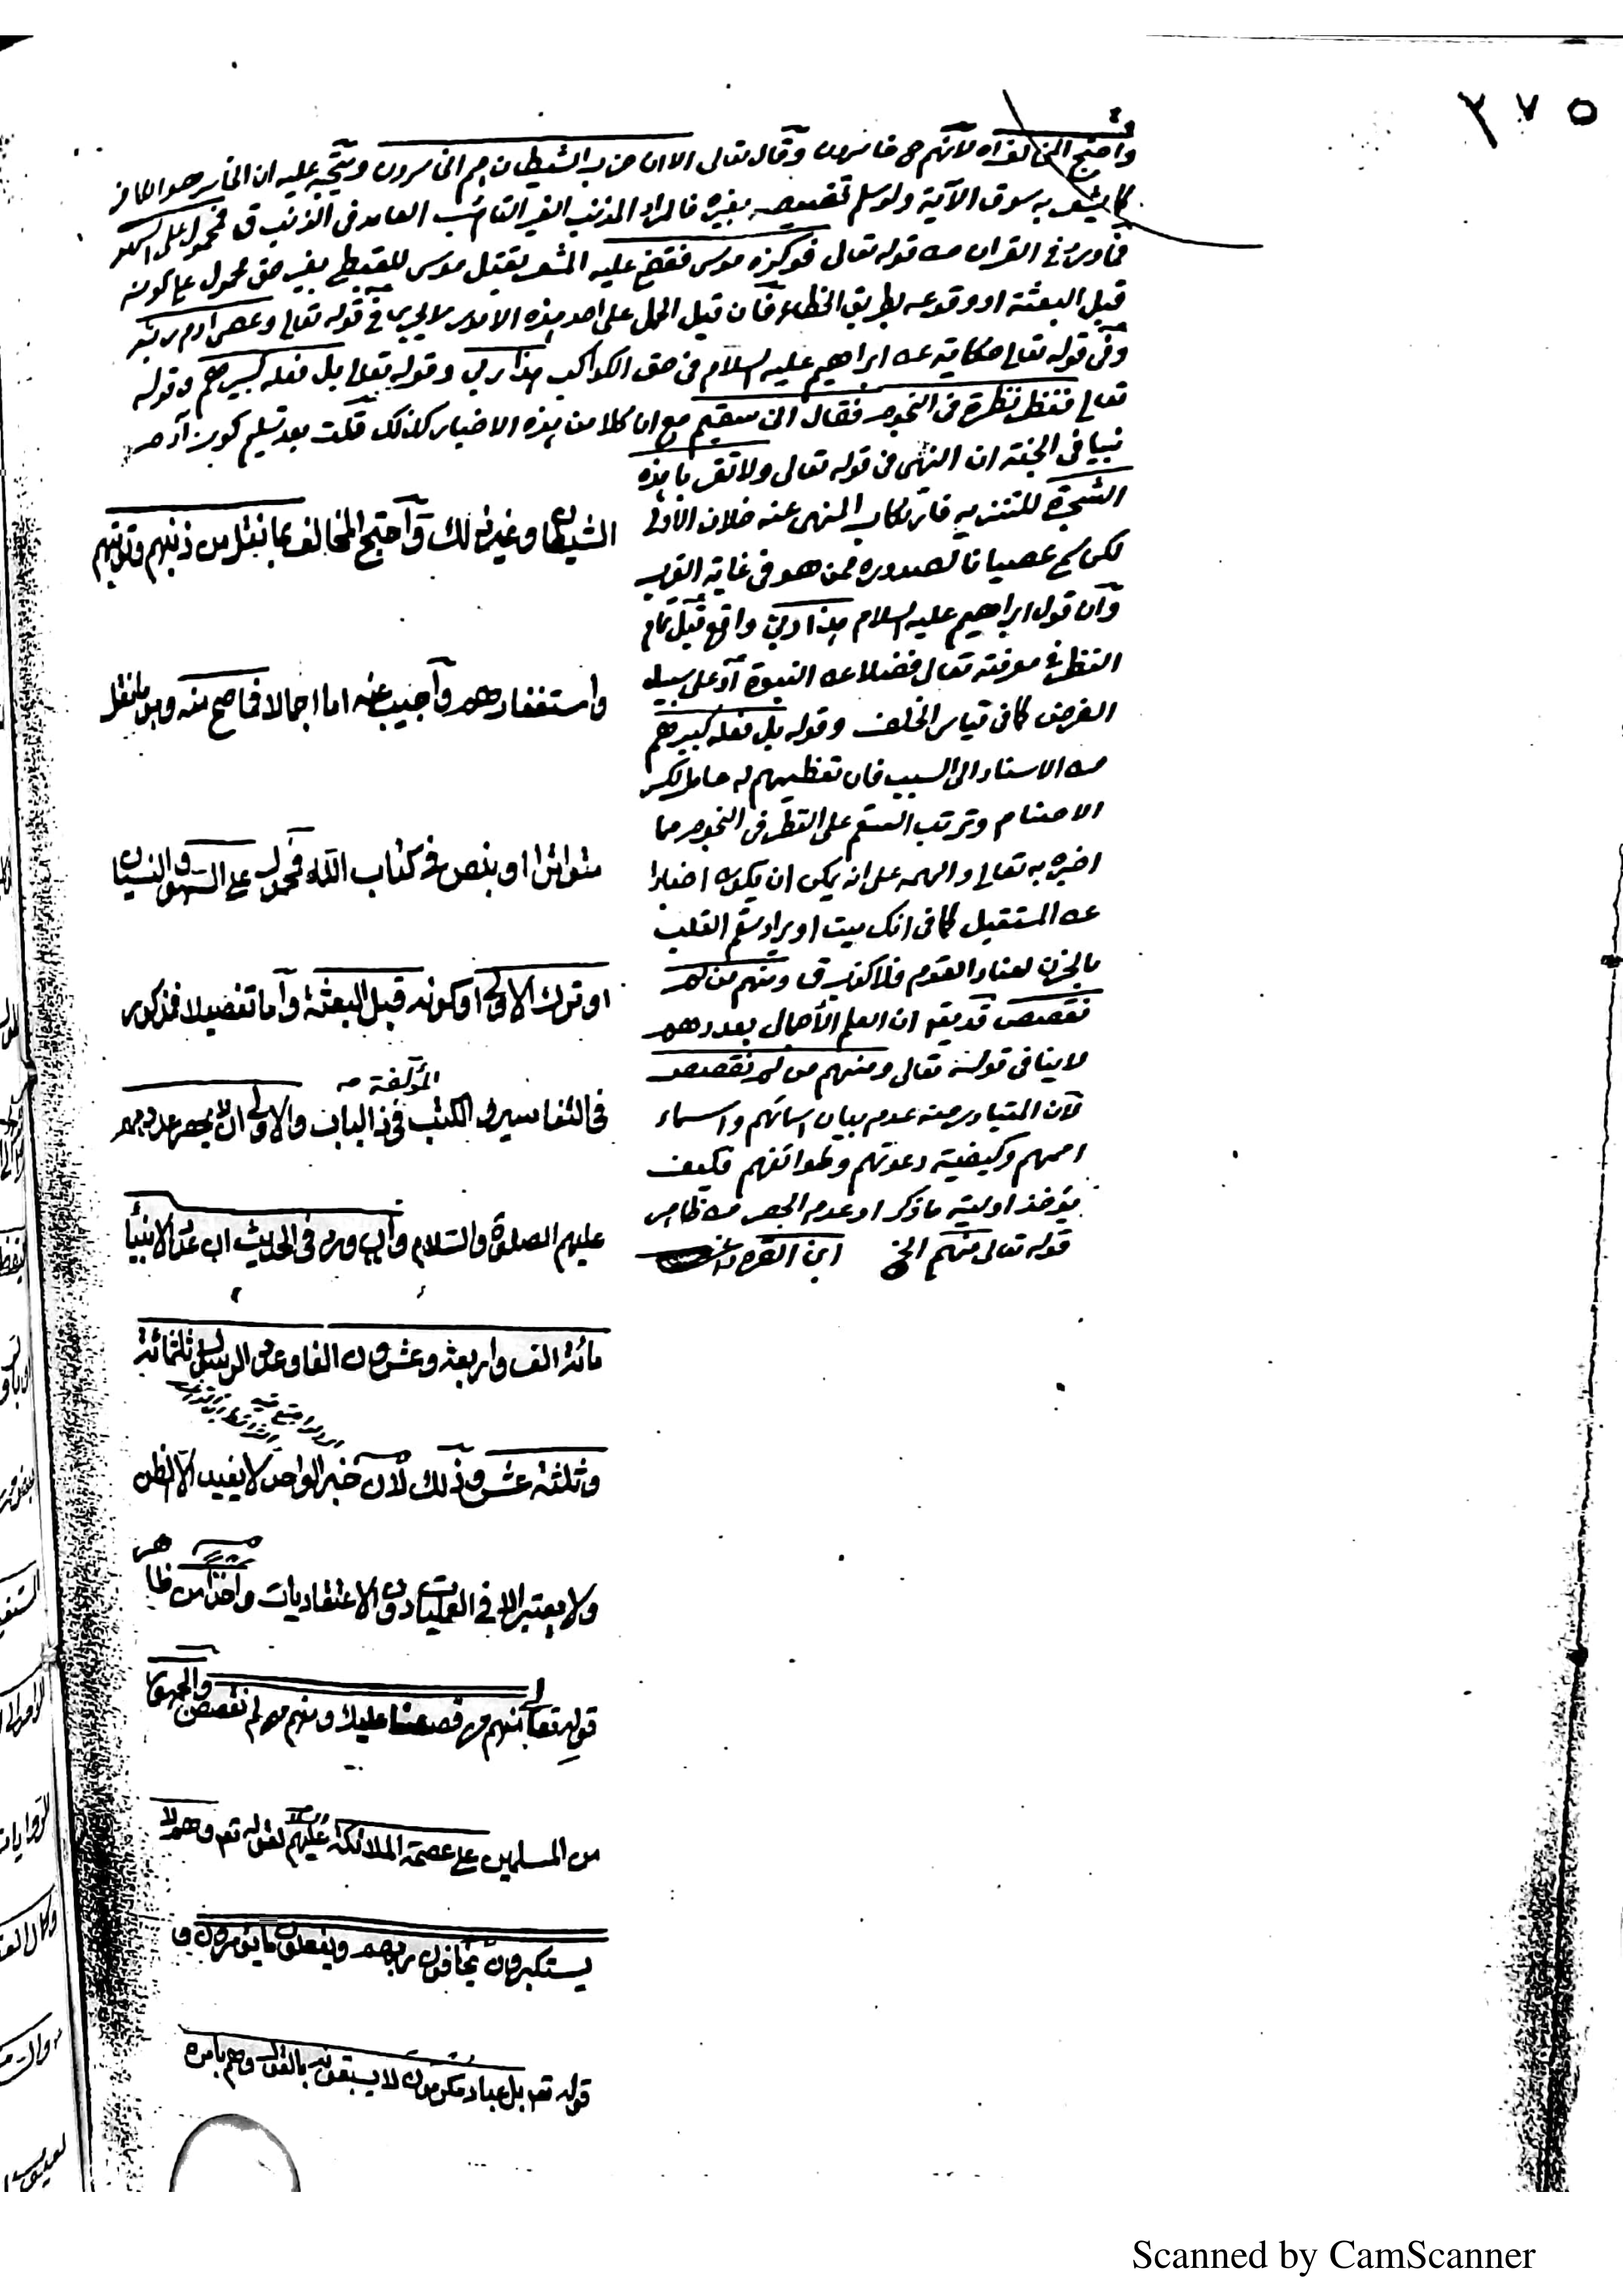 ٣٧٥
واحتج المخالف اه لأنهم ح خاسرون وقال تعالى الا ان حزب الشيطان هم الخاسرون ويتجه عليه ان الخاسر هو الكافر
كما يشعر به سوق الآية ولو سلم تخصيصه بغيره فالمراد المذنب الغير التائب العامد في الذنب ق فمحمول على السهو
فما ورد في القران من قوله تعالى فوكزه موسى فقضى عليه المشعر بقتل موسى للقبطي بغير حق محمول على كونه
قبل البعثة او وقوعه بطريق الخطاء فان قيل الحمل على احد هذه الامور لا يجري في قوله تعالى وعصى ادم ربه
وفي قوله تعالى حكاية عن ابراهيم عليه السلام في حق الكواكب هذا ربي وقوله تعالى بل فعله كبيرهم وقوله
تعالى فنظر نظرة في النجوم فقال اني سقيم مع ان كلا من هذه الاخبار كذلك قلت بعد تسليم كون آدم
نبيا في الجنة ان النهي في قوله تعالى ولا تقربا هذه
الشجرة للتنزيه فارتكاب المنهي عنه خلاف الأولى
لكن سمي عصيانا لصدوره ممن هو في غاية القرب
وان قول ابراهيم عليه السلام هذا ربي واقع قبل تمام
النظر في معرفته تعالى فضلا عن النبوة أو على سبيل
الفرض كما في قياس الخلف وقوله بل فعله كبيرهم
من الاسناد الى السبب فان تعظيمهم له حامل لكسر
الاصنام وترتب السقم على النظر في النجوم مما
اخبره به تعالى والهمه على انه يمكن ان يكون اخبارا
عن المستقبل كما في انك ميت او يراد سقم القلب
بالحزن لعناد القوم فلا كذب ق ومنهم من لم
نقصص قد يقه ان العلم الأجمالي بعددهم
لا ينافي قوله تعالى ومنهم من لم نقصص
لان المتبادر منه عدم بيان اسمائهم واسماء
اممهم وكيفية دعوتهم وطوائفهم فكيف
يؤخذ اولية ما ذكر او عدم الحصر من ظاهر
قوله تعالى منهم الخ ابن القره داغي
الشيطان وغير ذلك واحتج المخالف بما نقل من ذنبهم وتوبتهم
واستغفارهم وأجيب عنه اما اجمالا فما صح منه وهو ما نقل
متواترا او بنص في كتاب الله فمحمول على السهو والنسيان
او ترك الاولى او كونه قبل البعثة وأما تفصيلا فمذكور
في التفاسير والكتب المؤلفة في ذا الباب والاولى ان لا يحصر عددهم
عليهم الصلوة والسلام وان ورد في الحديث ان عدد الانبياء
مائة الف واربعة وعشرون الفا وعدد الرسل ثلثمائة
وثلثة عشر وذلك لان خبر الواحد لا يفيد الا الظن
ولا يعتبر الا في العمليات دون الاعتقاديات واخذا من ظاهر
قوله تعالى منهم من قصصنا عليك ومنهم من لم نقصص والجمهور
من المسلمين على عصمة الملائكة عليهم السلام لقوله تعه وهم لا
يستكبرون يخافون ربهم ويفعلون ما يؤمرون و
قوله تعه بل عباد مكرمون لا يسبقونه بالقول وهم بامره
Scanned by CamScanner